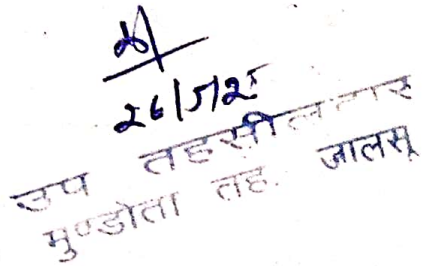 26/5/25
उप तहसीलदार
मुण्डोता तह. जालसू